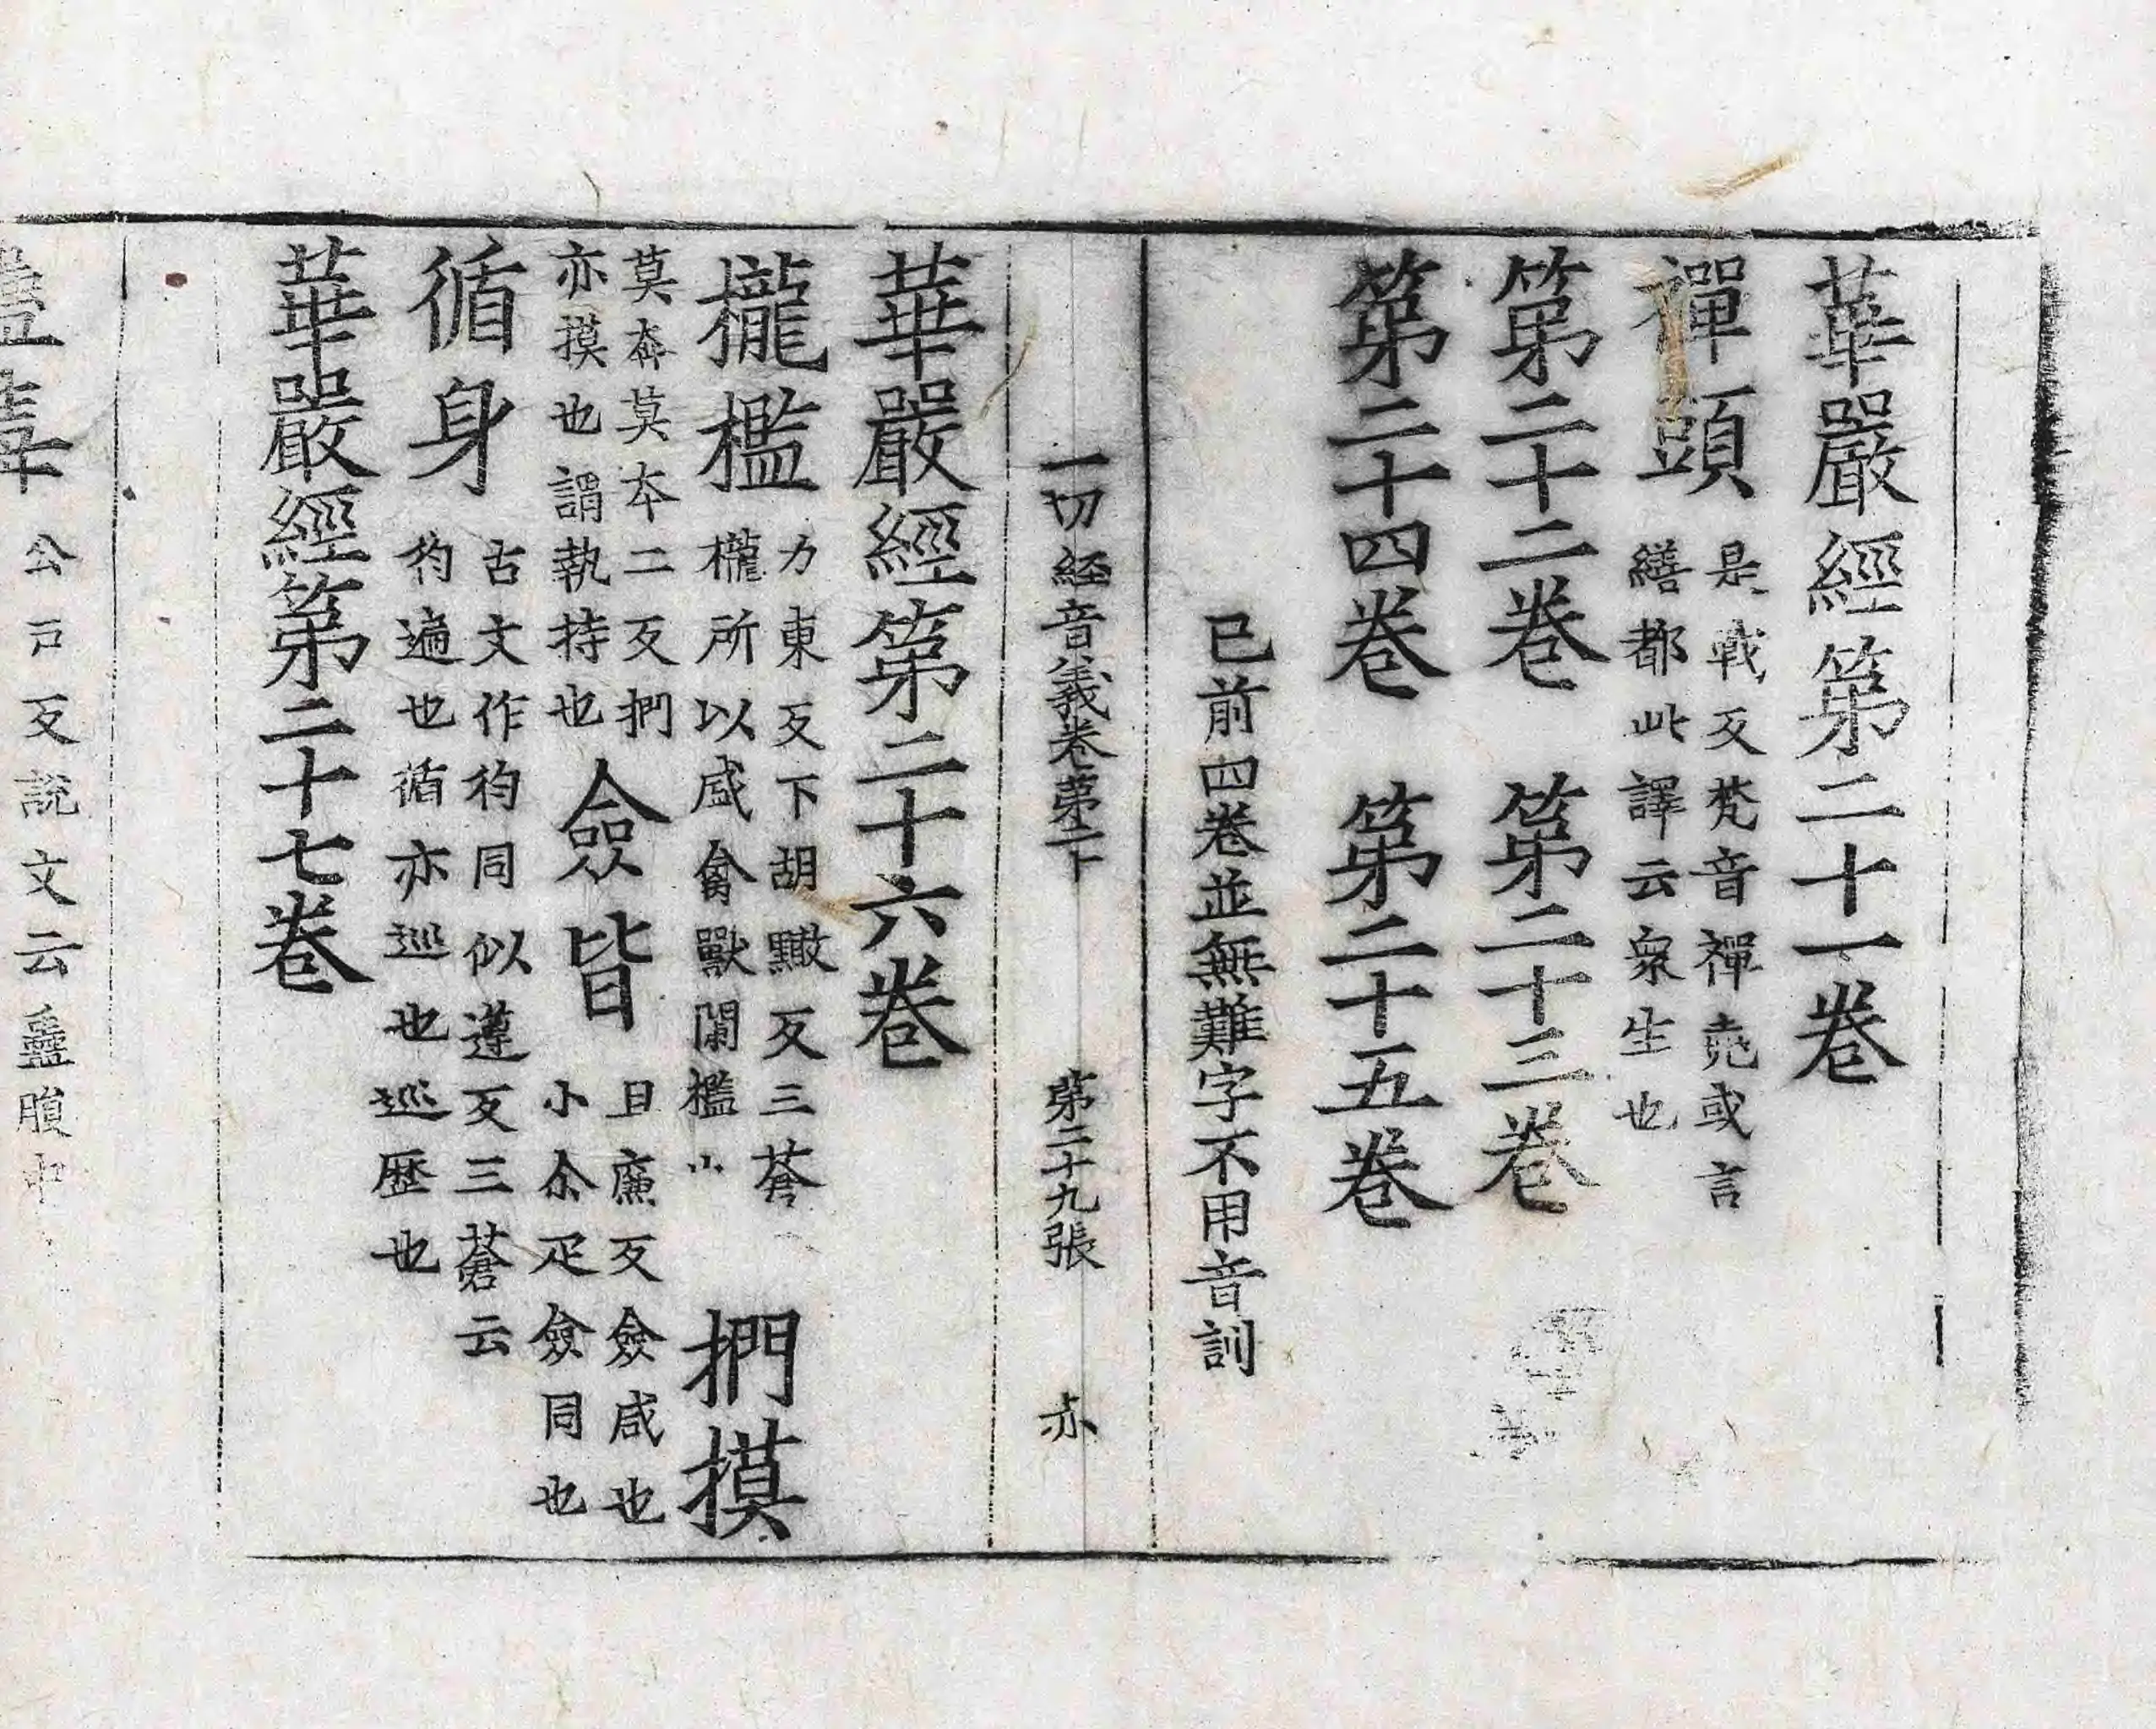 華嚴經第二十一卷
禪頭 是戰反梵音禪堯或言
繕都此譯云衆生也
第二十二卷 第二十三卷
第二十四卷 第二十五卷
已前四卷並無難字不用音訓
一切經音義卷第二下 第二十九張 亦
華嚴經第二十六卷
櫳檻 力東反下胡黤反三蒼
櫳所以盛禽獸闌檻也 捫摸
莫奔莫本二反捫
亦摸也謂執持也 僉皆 且廉反僉咸也
小尒疋僉同也
循身 古文作㣙同似遵反三蒼云
㣙遍也循亦巡也巡歷也
華嚴經第二十七卷
公戸反説文云蠱腹中